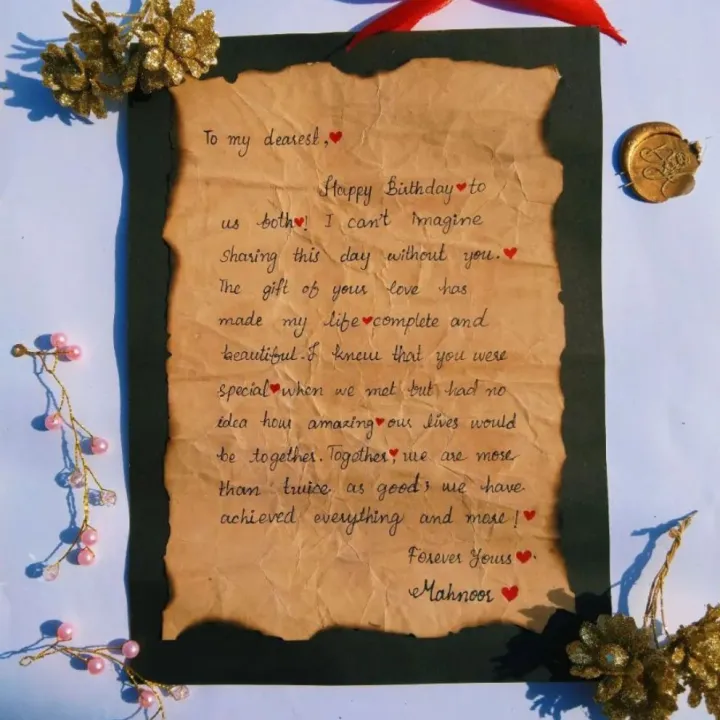 To my dearest,❤
Happy Birthday❤to
us both❤! I can't imagine
sharing this day without you.❤
The gift of your love has
made my life❤complete and
beautiful. I knew that you were
special❤when we met but had no
idea how amazing❤our lives would
be together. Together❤, we are more
than twice as good; we have
achieved everything and more!❤
Forever Yours❤.
Mahnoor❤